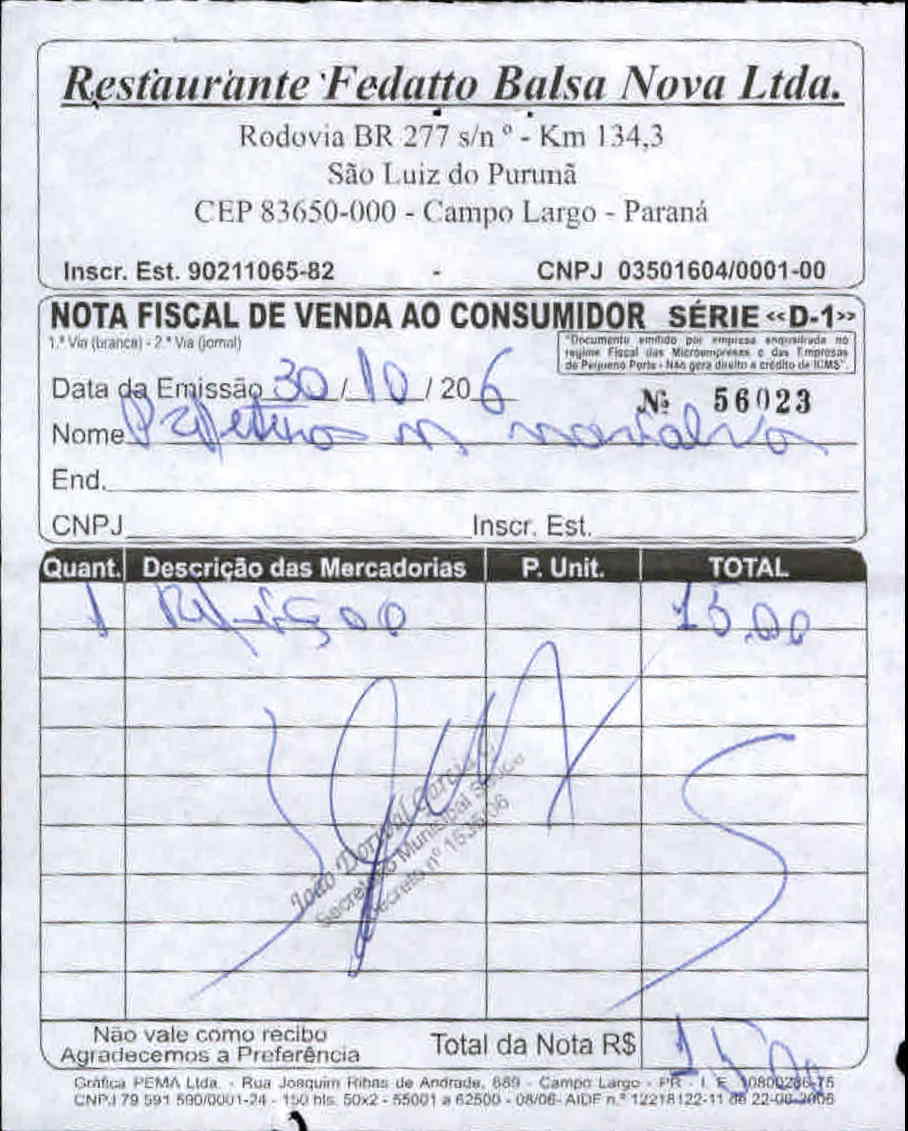 Restaurante Fedatto Balsa Nova Ltda.
Rodovia BR 277 s/n º - Km 134,3
São Luiz do Purunã
CEP 83650-000 - Campo Largo - Paraná
Inscr. Est. 90211065-82 - CNPJ 03501604/0001-00
NOTA FISCAL DE VENDA AO CONSUMIDOR SÉRIE «D-1»
1.ª Via (branca) - 2.ª Via (jornal)
"Documento emitido por empresa enquadrada no
regime Fiscal das Microempresas e das Empresas
de Pequeno Porte - Não gera direito a crédito de ICMS".
Data da Emissão 30/10/206
Nº 56023
Nome
End.
CNPJ Inscr. Est.
Quant. Descrição das Mercadorias P. Unit. TOTAL
1 Refeição 15,00
João Dorival Garcia
Secretário Municipal
Decreto nº
Não vale como recibo
Agradecemos a Preferência
Total da Nota R$ 15,00
Gráfica PEMA Ltda. - Rua Joaquim Ribas de Andrade, 889 - Campo Largo - PR - I. E. 10800286-75
CNPJ 79 591 590/0001-24 - 150 bls. 50x2 - 55001 a 62500 - 08/06- AIDF n.º 12218122-11 de 22-08-2006